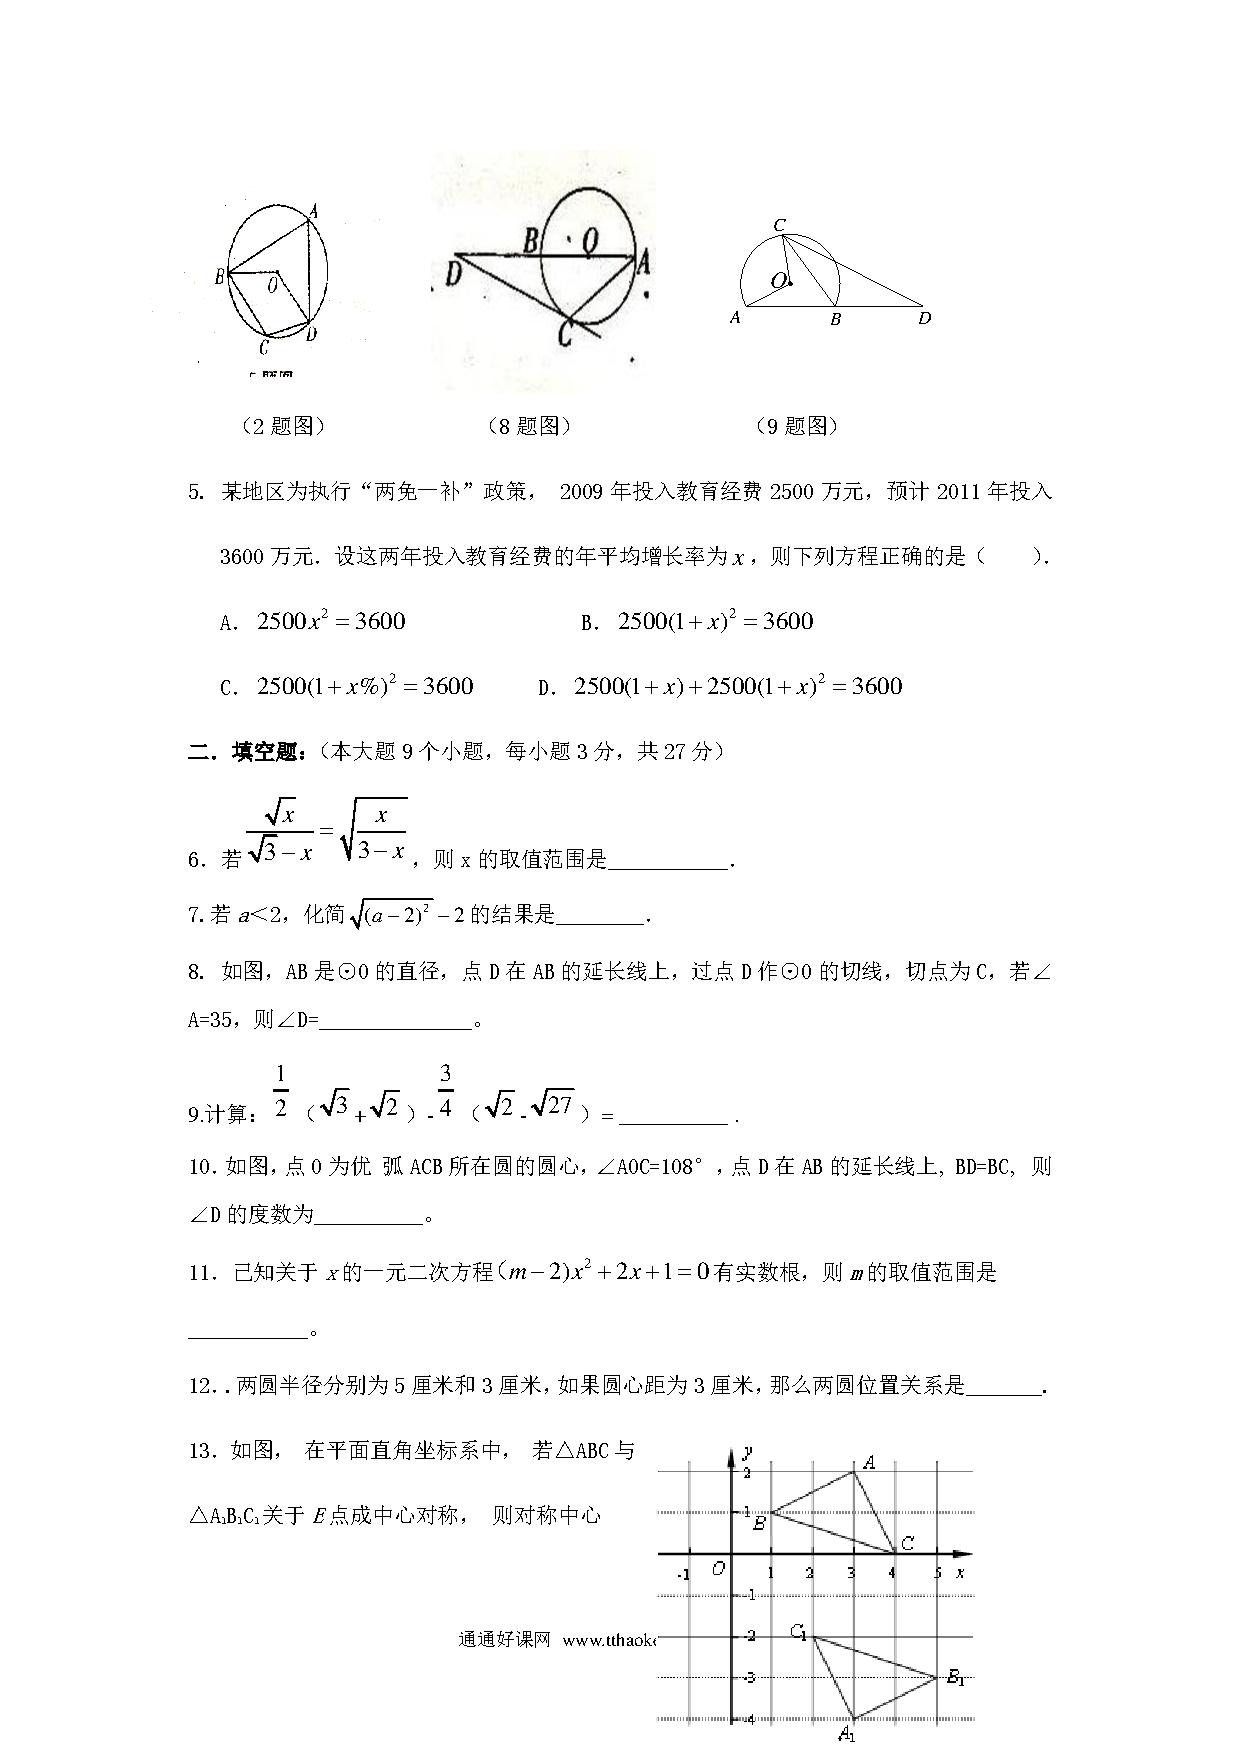 A
B
O
D
C
B
O
A
D
C
C
O
A
B
D
(2题图) (8题图) (9题图)
5. 某地区为执行“两免一补”政策, 2009年投入教育经费2500万元,预计2011年投入
3600万元.设这两年投入教育经费的年平均增长率为x,则下列方程正确的是( ).
A. 2500x²=3600 B. 2500(1+x)²=3600
C. 2500(1+x%)²=3600 D. 2500(1+x)+2500(1+x)²=3600
二.填空题:(本大题9个小题,每小题3分,共27分)
6.若 √x/(√3−x)=√(x/(3−x)) ,则x的取值范围是___________.
7.若a<2,化简√((a−2)²)−2的结果是________.
8. 如图,AB是⊙O的直径,点D在AB的延长线上,过点D作⊙O的切线,切点为C,若∠
A=35,则∠D=______________。
9.计算: 1/2 (√3+√2)-3/4 (√2-√27)=__________.
10.如图,点O为优 弧ACB所在圆的圆心,∠AOC=108°,点D在AB的延长线上, BD=BC, 则
∠D的度数为__________。
11.已知关于x的一元二次方程(m−2)x²+2x+1=0有实数根,则m的取值范围是
___________。
12..两圆半径分别为5厘米和3厘米,如果圆心距为3厘米,那么两圆位置关系是_______.
13.如图, 在平面直角坐标系中, 若△ABC与
△A₁B₁C₁关于E点成中心对称, 则对称中心
y
2
A
1
B
C
-1
O
1
2
3
4
5
x
-1
C₁
-2
-3
B₁
-4
A₁
通通好课网 www.tthaoke